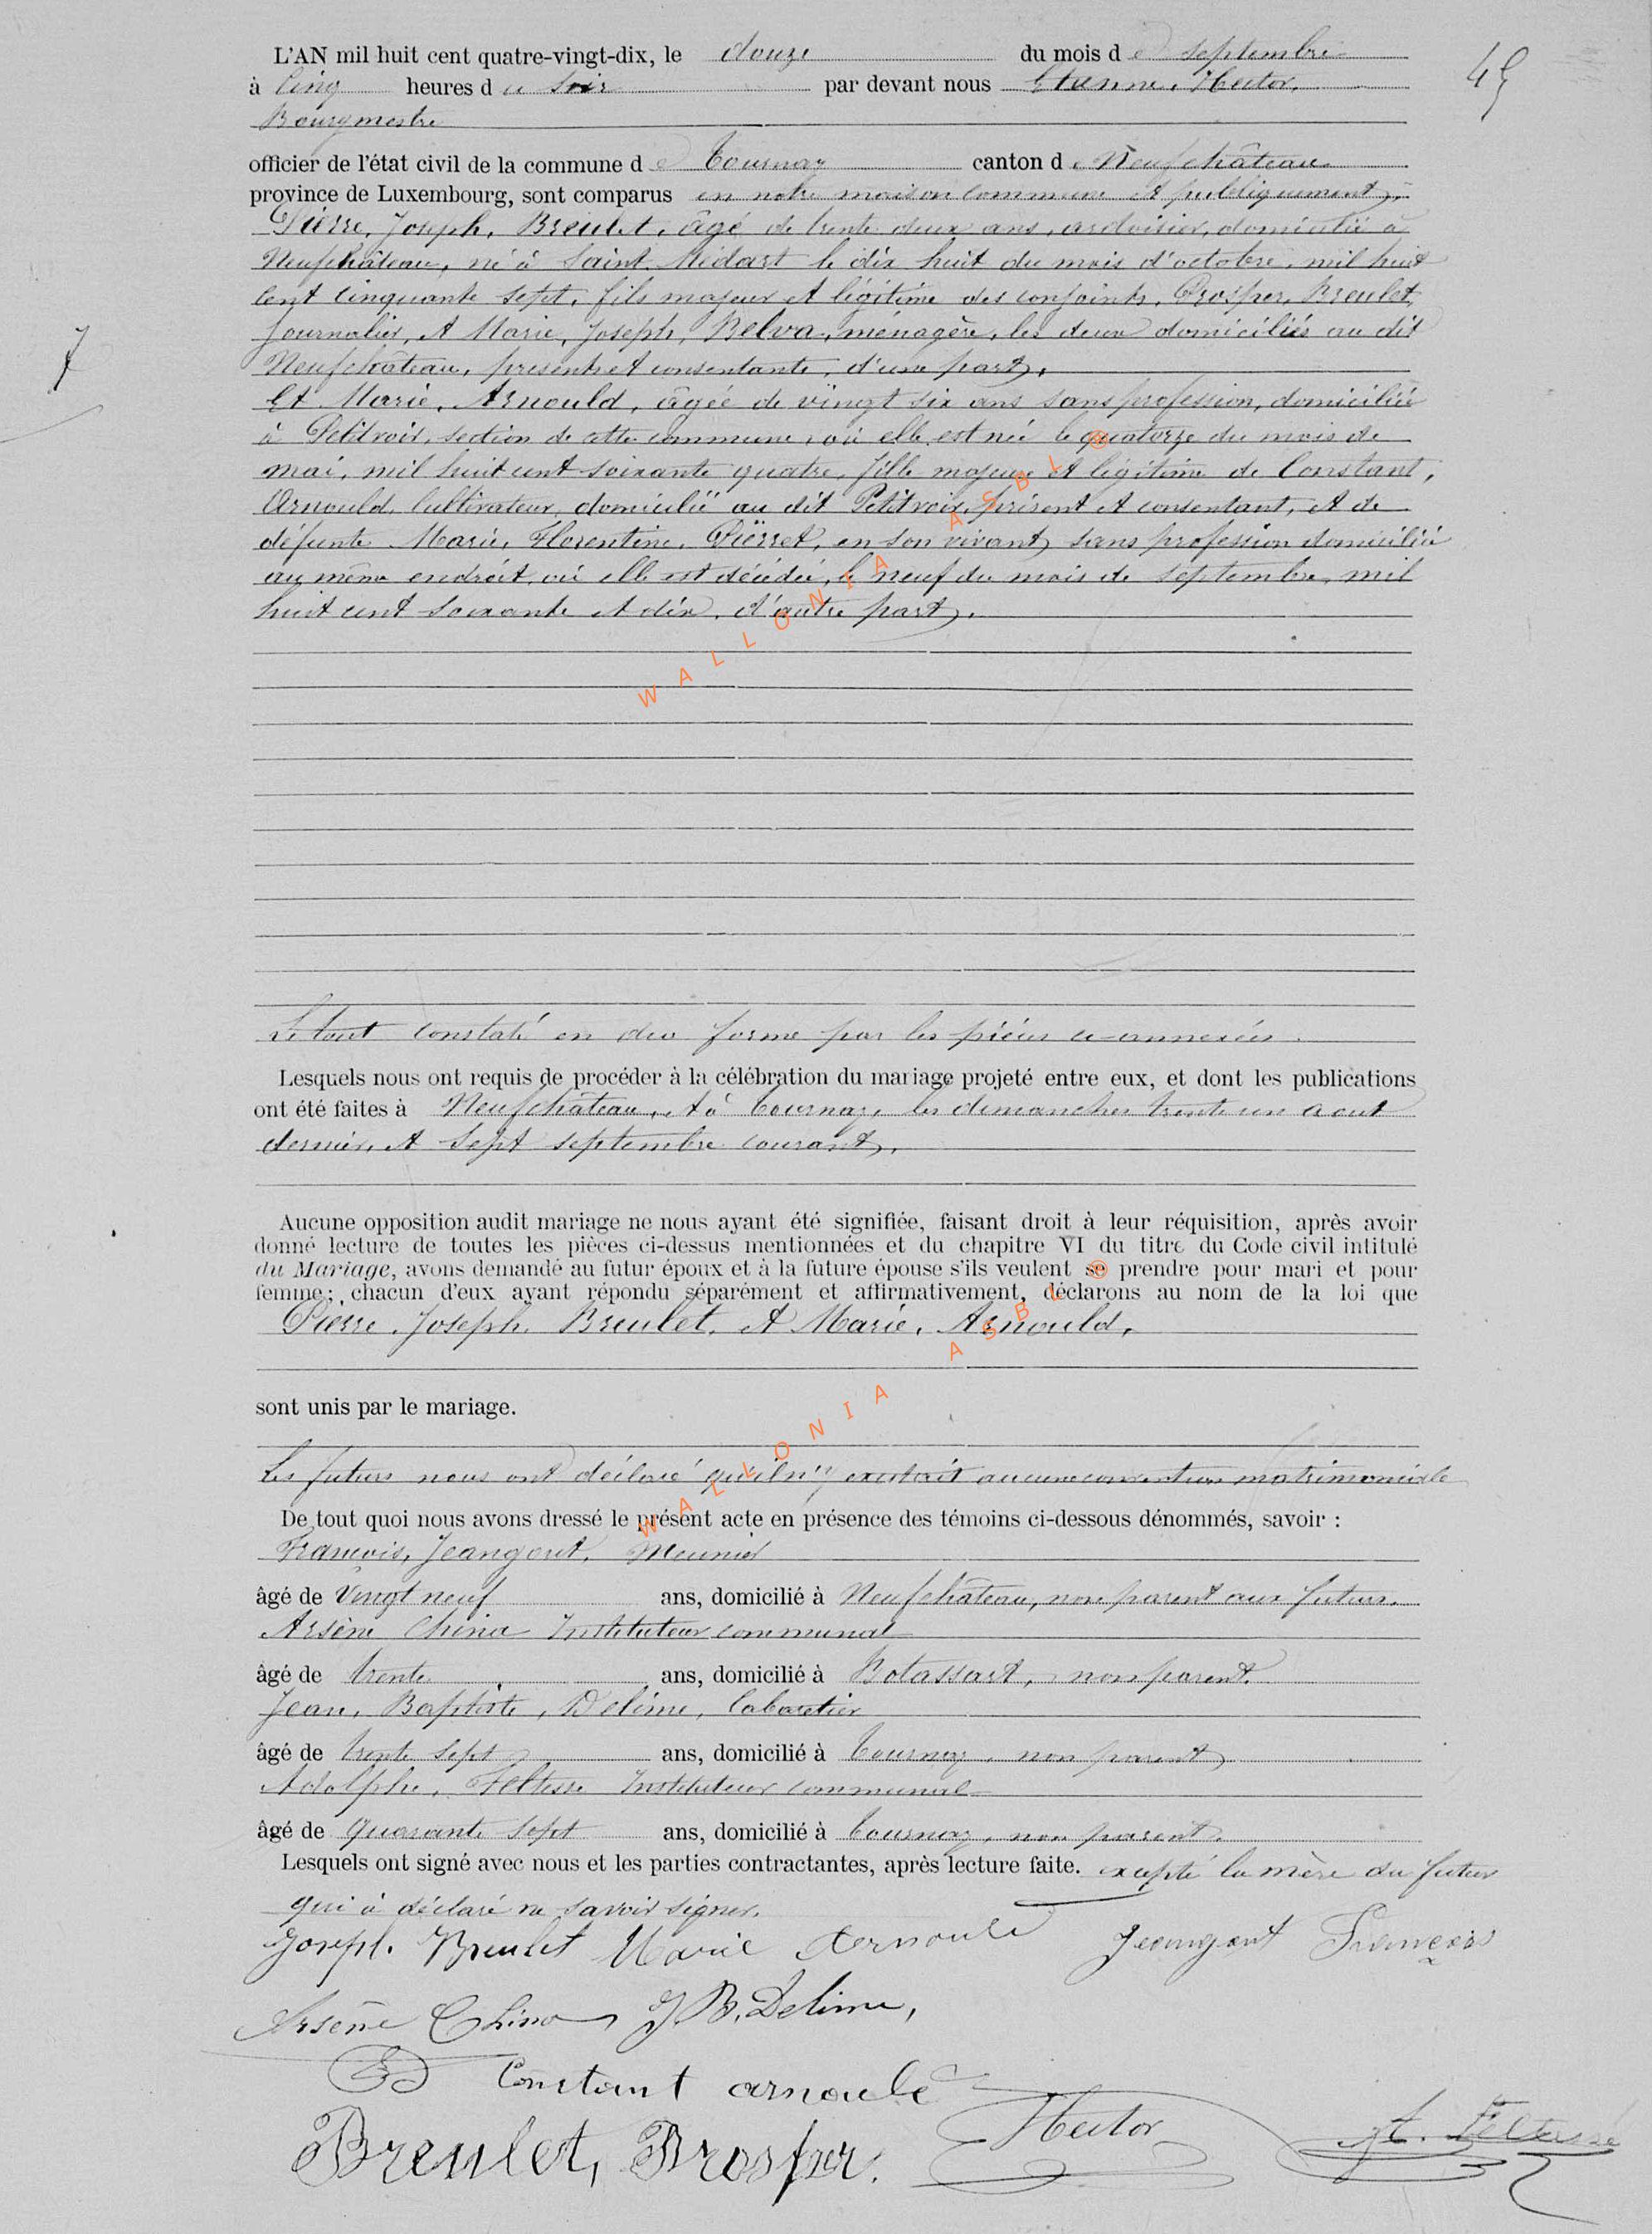 L'AN mil huit cent quatre-vingt-dix, le douze du mois de septembre
45
à Cinq heures du soir par devant nous Etienne, Hector,
Bourgmestre
officier de l'état civil de la commune de Tournay canton de Neufchâteau
province de Luxembourg, sont comparus en notre maison commune et publiquement,
Pierre, Joseph, Breulet, âgé de trente deux ans, ardoisier, domicilié à
Neufchâteau, né à Saint Médart le dix huit du mois d'octobre, mil huit
cent cinquante sept, fils majeur et légitime des conjoints, Prosper, Breulet,
7
Journalier, et Marie, Joseph, Belva, ménagère, les deux domiciliés au dit
Neufchâteau, présents et consentants, d'une part,
Et Marie, Arnould, âgée de vingt six ans sans profession, domiciliée
à Petitvoir, section de cette commune, où elle est née le quatorze du mois de
mai, mil huit cent soixante quatre, fille majeure et légitime de Constant,
Arnould, Cultivateur, domicilié au dit Petitvoir, présent et consentant, et de
défunte Marie, Florentine, Pierret, en son vivant, sans profession domiciliée
au même endroit, où elle est décédée, le neuf du mois de septembre, mil
huit cent soixante et dix, d'autre part,
WALLONIA ASBL ®
Le tout constaté en due forme par les pièces ci-annexées.
Lesquels nous ont requis de procéder à la célébration du mariage projeté entre eux, et dont les publications
ont été faites à Neufchâteau, et à Tournay, les dimanches trente un aout
dernier, et sept septembre courant,
Aucune opposition audit mariage ne nous ayant été signifiée, faisant droit à leur réquisition, après avoir
donné lecture de toutes les pièces ci-dessus mentionnées et du chapitre VI du titre du Code civil intitulé
du Mariage, avons demandé au futur époux et à la future épouse s'ils veulent se prendre pour mari et pour
femme; chacun d'eux ayant répondu séparément et affirmativement, déclarons au nom de la loi que
Pierre, Joseph, Breulet, et Marie, Arnould,
sont unis par le mariage.
WALLONIA ASBL ®
Les futurs nous ont déclaré qu'il n'y existait aucune convention matrimoniale
De tout quoi nous avons dressé le présent acte en présence des témoins ci-dessous dénommés, savoir :
François, Jeangout, Meunier
âgé de Vingt neuf ans, domicilié à Neufchâteau, non parent aux futurs.
Arsène China Instituteur communal
âgé de trente ans, domicilié à Botassart, non parent.
Jean, Baptiste, Delime, Cabaretier
âgé de trente sept ans, domicilié à Tournay, non parent,
Adolphe, Feltesse Instituteur communal
âgé de quarante sept ans, domicilié à Tournay, non parent.
Lesquels ont signé avec nous et les parties contractantes, après lecture faite. excepté la mère du futur
qui à déclaré ne savoir signer.
Joseph. Breulet Marie Arnould Jeangout François
Arsène China J.B. Delime,
Constant arnould
Hector
A. Feltesse
Breulet, Prosper.